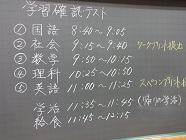 学習確認テスト
① 国語 8:40～9:05
② 社会 9:15～9:40 ワークプリント提出
③ 数学 9:50～10:15
④ 理科 10:25～10:50
⑤ 英語 11:00～11:25 スペコンプリント
学活 11:35～11:45 (帰りの学活)
給食 11:45～12:15